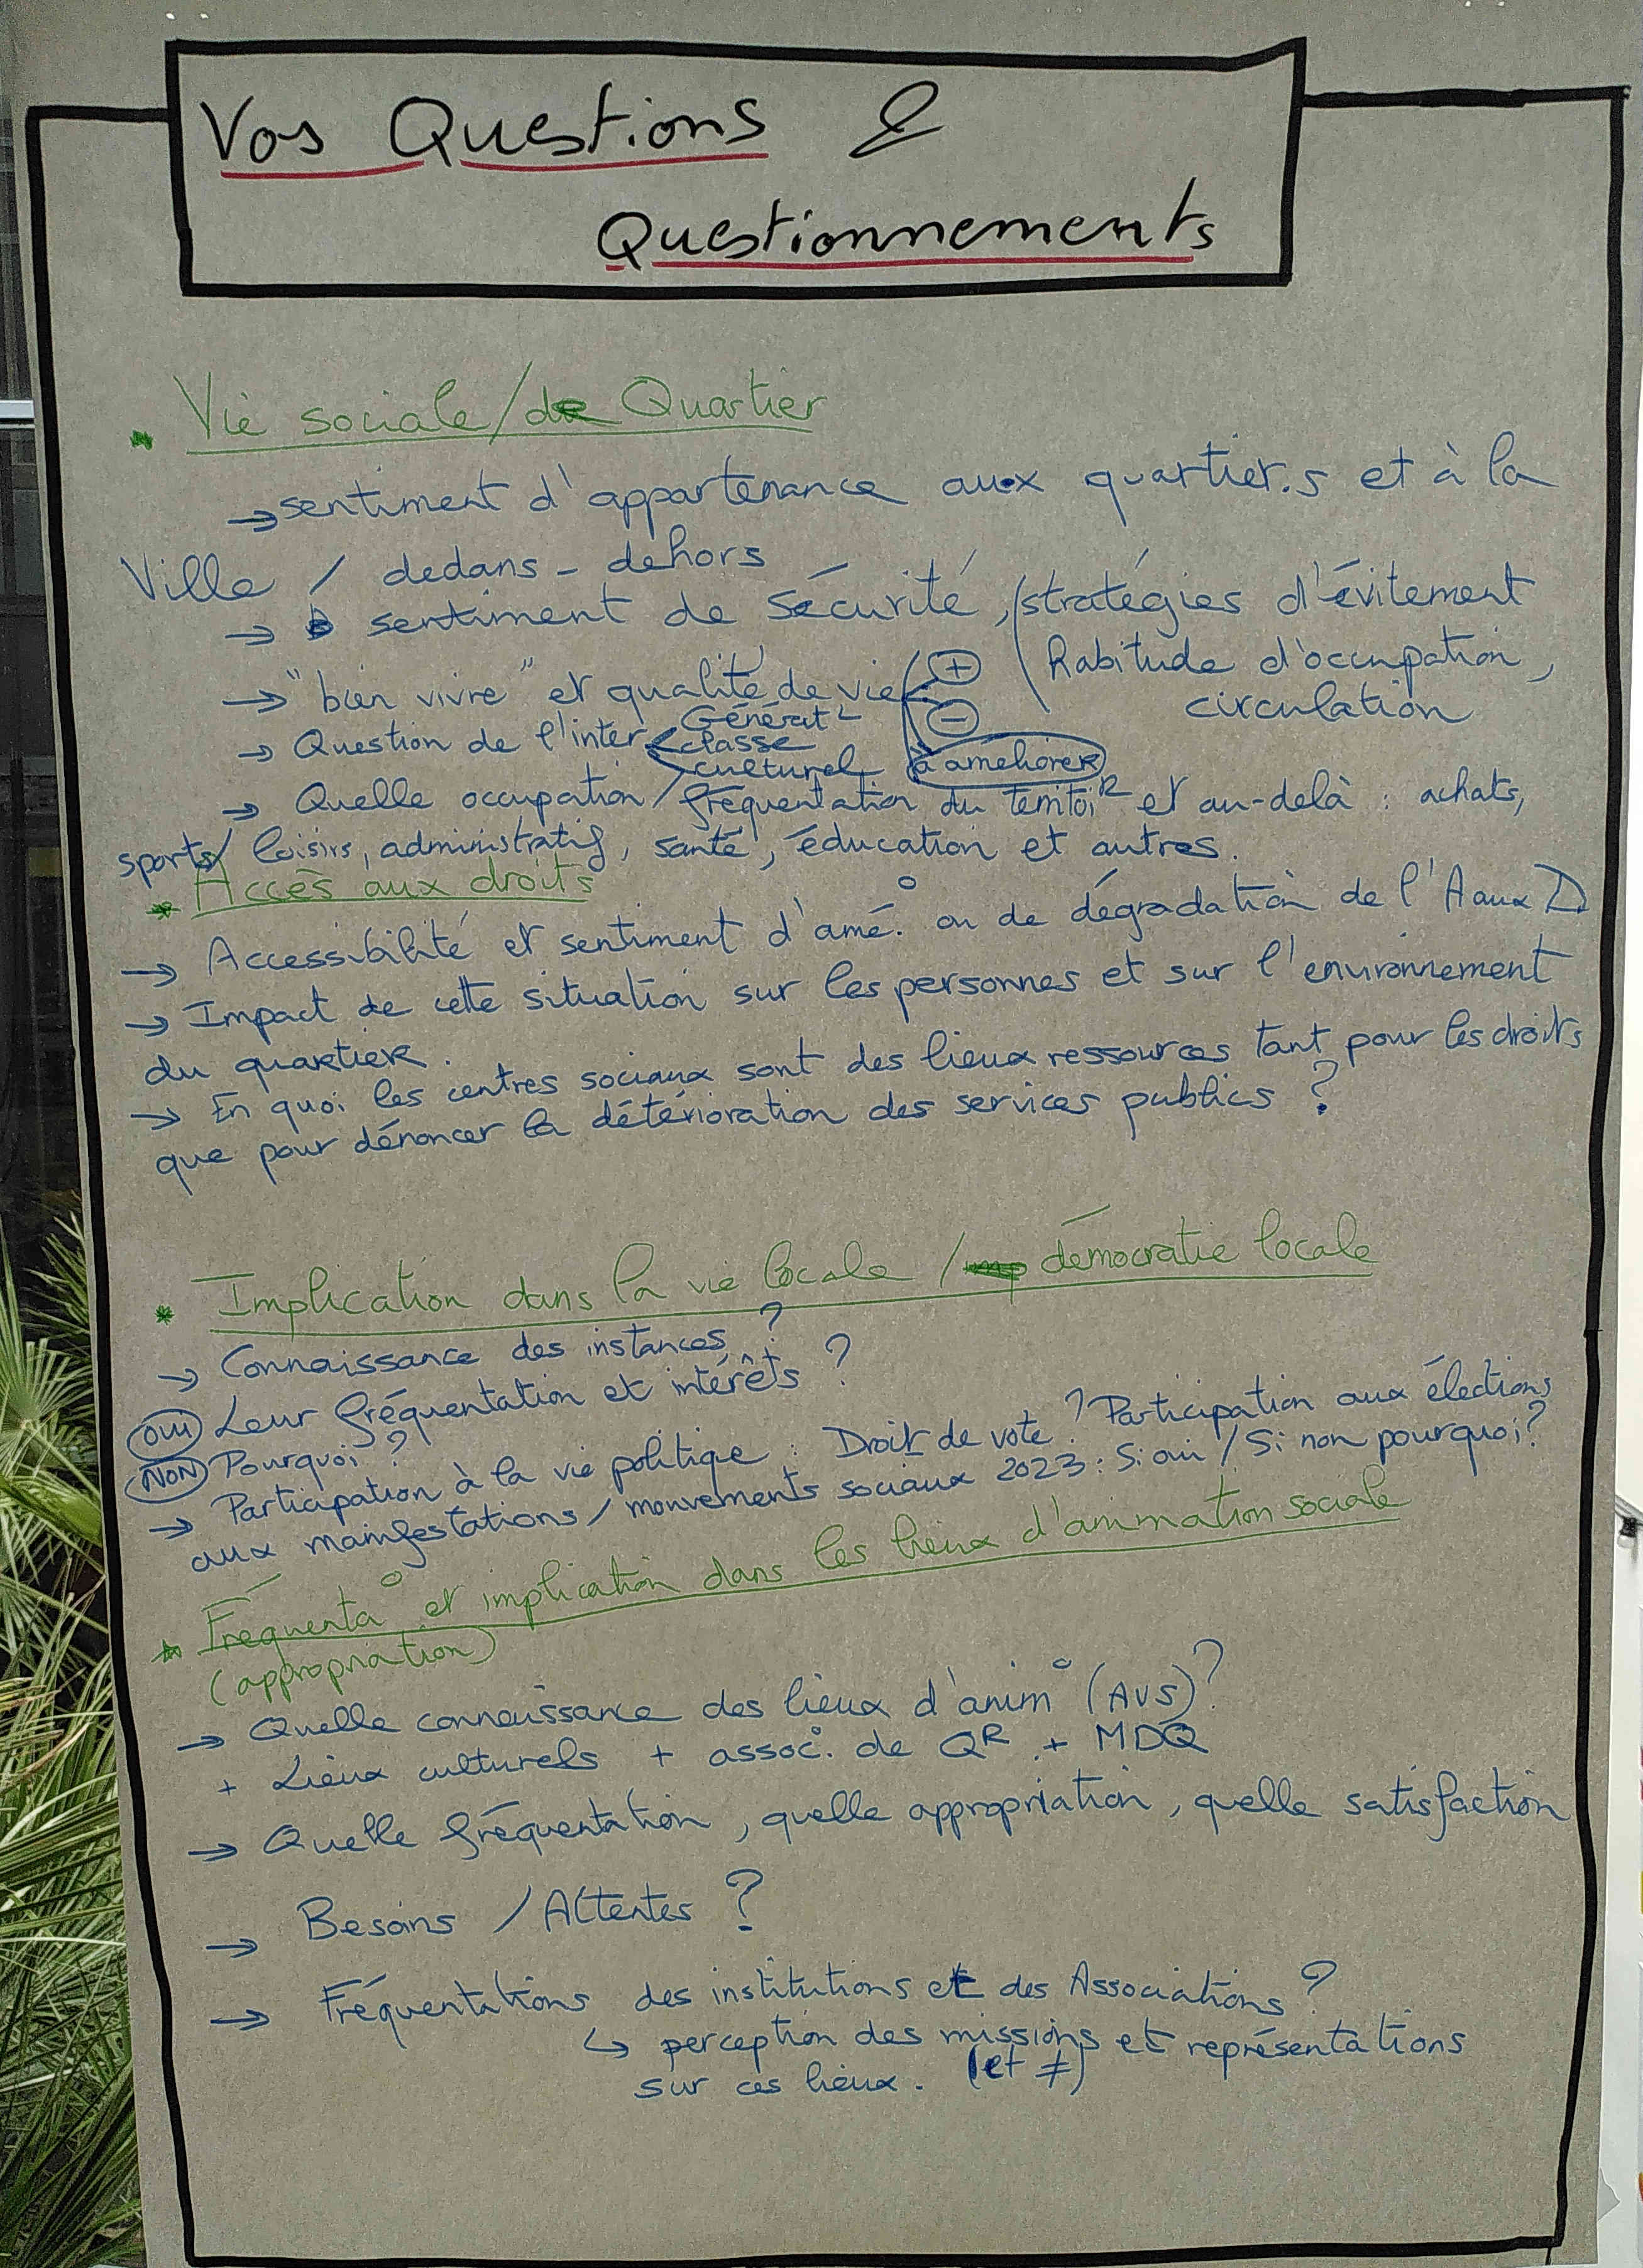 Vos Questions &
Questionnements
* Vie sociale / de Quartier
→ sentiment d'appartenance aux quartier.s et à la
Ville / dedans - dehors
→ sentiment de sécurité, / stratégies d'évitement
habitude d'occupation,
circulation
→ "bien vivre" et qualité de vie + -
à améliorer
→ Question de l'inter Générat°
classe
culturel
→ Quelle occupation / fréquentation du territoire et au-delà : achats,
sports / loisirs, administratif, santé, éducation et autres.
* Accès aux droits
→ Accessibilité et sentiment d'amé.° ou de dégradation de l'A aux D
→ Impact de cette situation sur les personnes et sur l'environnement
du quartier.
→ En quoi les centres sociaux sont des lieux ressources tant pour les droits
que pour dénoncer la détérioration des services publics ?
* Implication dans la vie locale / démocratie locale
→ Connaissance des instances ?
OUI Leur fréquentation et intérêts ?
NON Pourquoi ?
→ Participation à la vie politique : Droit de vote ? Participation aux élections
aux manifestations / mouvements sociaux 2023 : Si oui / Si non pourquoi ?
* Fréquenta° et implication dans les lieux d'animation sociale
(appropriation)
→ Quelle connaissance des lieux d'anim° (AVS) ?
+ Lieux culturels + assoc. de QR + MDQ
→ Quelle fréquentation, quelle appropriation, quelle satisfaction
→ Besoins / Attentes ?
→ Fréquentations des institutions et des Associations ?
↳ perception des missions et représentations
sur ces lieux. (et ≠)